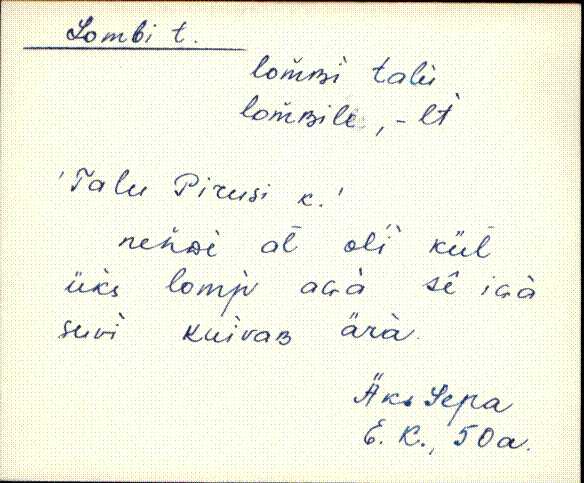 Lombi t.
lom̆ʙi talu
lom̆ʙilè, -lt
'Talu Pirusi k.'
al oli kül
üks lomp aGà sē iGà
suvì kuivaʙ ärà.
Äks Sepa
E. K., 50a.